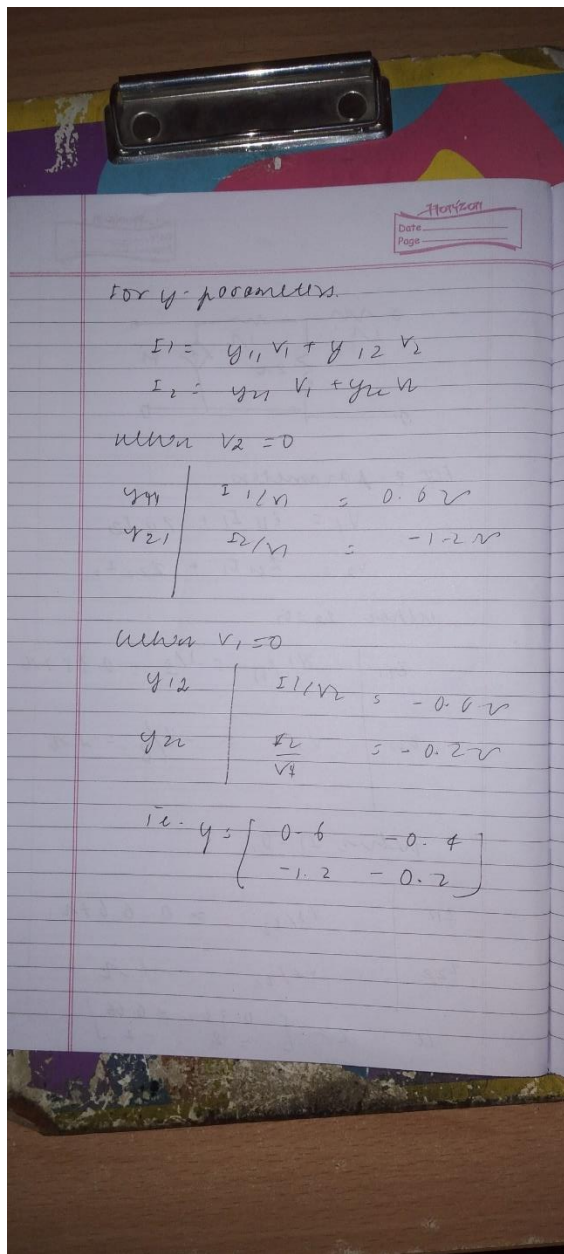 Horizon
Date
Page
For y-parameters.
I1 = y11 V1 + y12 V2
I2 = y21 V1 + y22 V2
when V2 = 0
y11 I1/V1 = 0.6 ʊ
y21 I2/V1 = -1.2 ʊ
when V1 = 0
y12 I1/V2 = -0.6 ʊ
y22 I2/V2 = -0.2 ʊ
ie. y = [ 0.6 -0.4
-1.2 -0.2 ]